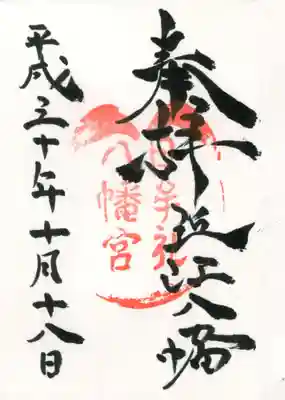 奉拝 近江八幡
八幡宮
平成三十年十月十八日